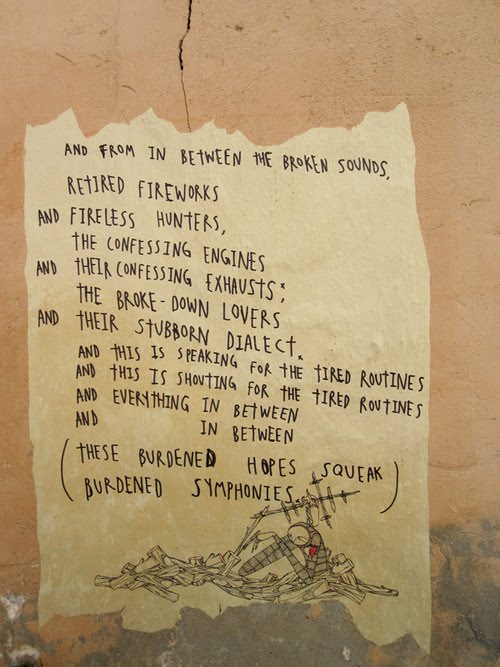 AND FROM IN BETWEEN THE BROKEN SOUNDS,
RETIRED FIREWORKS
AND FIRELESS HUNTERS,
THE CONFESSING ENGINES
AND THEIR CONFESSING EXHAUSTS;
THE BROKE-DOWN LOVERS
AND THEIR STUBBORN DIALECT.
AND THIS IS SPEAKING FOR THE TIRED ROUTINES
AND THIS IS SHOUTING FOR THE TIRED ROUTINES
AND EVERYTHING IN BETWEEN
AND IN BETWEEN
(THESE BURDENED HOPES SQUEAK
BURDENED SYMPHONIES.)